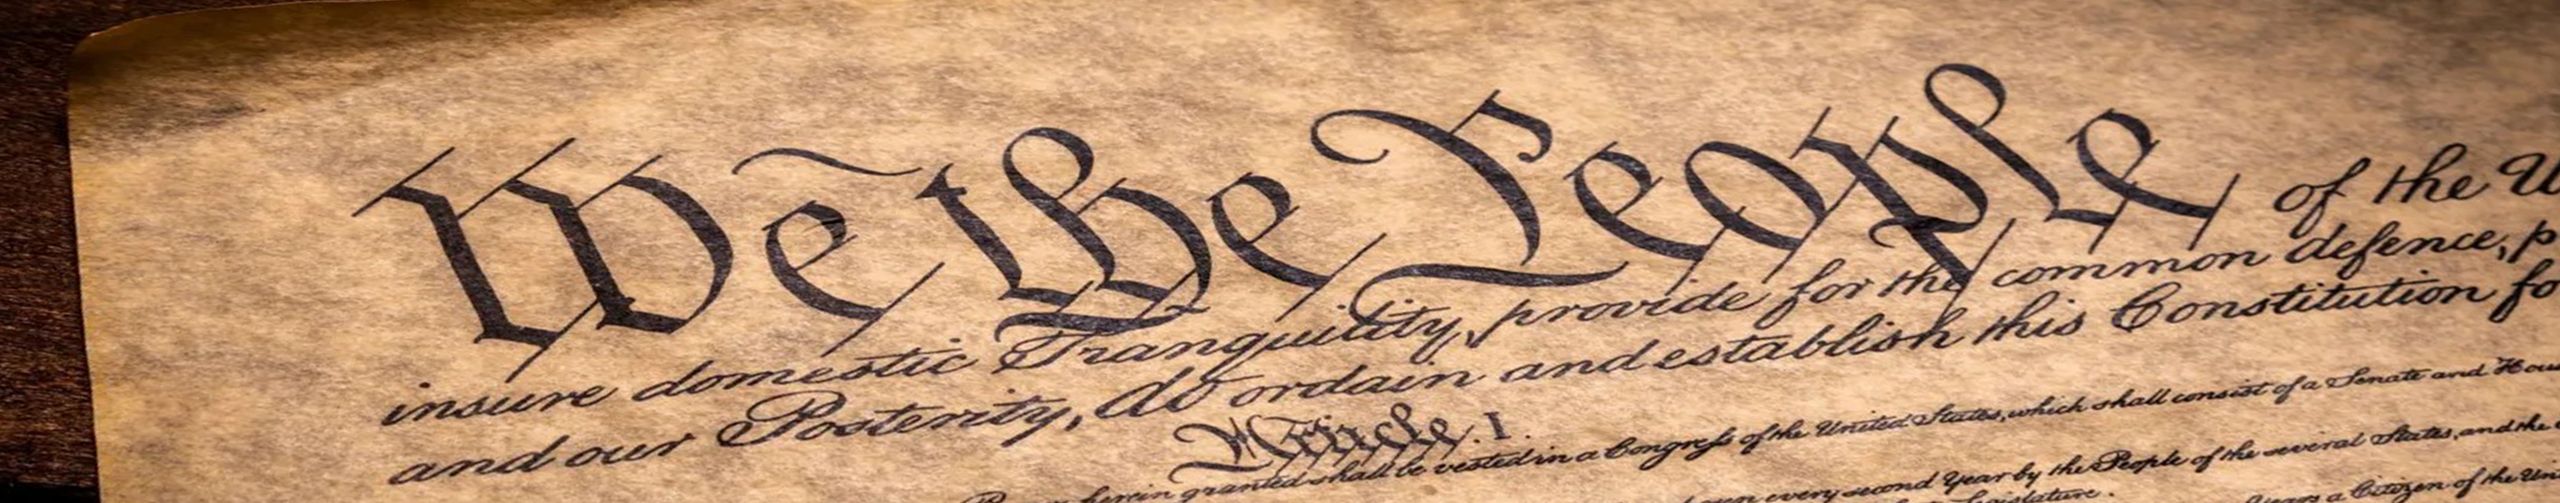 We the People of the U
insure domestic Tranquility, provide for the common defence, p
and our Posterity, do ordain and establish this Constitution fo
Article. I.
herein granted shall be vested in a Congress of the United States, which shall consist of a Senate and Hous
every second Year by the People of the several States, and the
Legislature.
a Citizen of the Uni